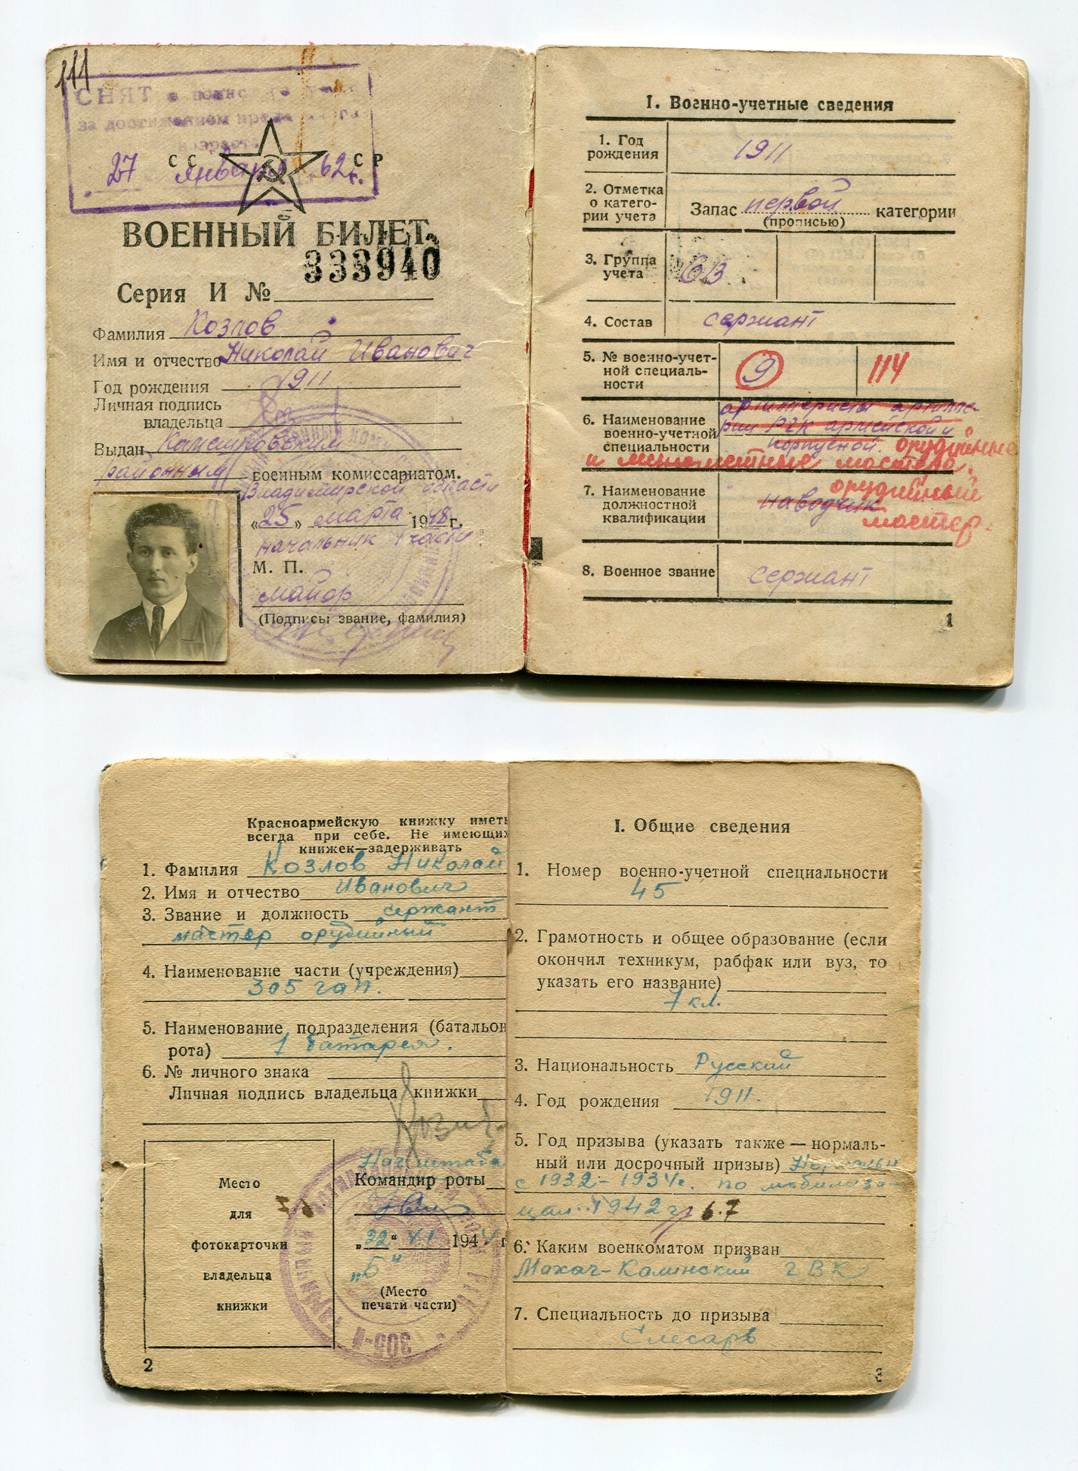 111
СНЯТ с воинского учета
за достижением предельного
возраста
27 января 62 г.
СССР
ВОЕННЫЙ БИЛЕТ
333940
Серия И №
Фамилия Козлов
Имя и отчество Николай Иванович
Год рождения 1911
Личная подпись
владельца
Выдан Камешковским
районным военным комиссариатом.
Владимирской области
«25» марта 1948 г.
начальник 1 части
М. П.
майор
(Подпись, звание, фамилия)
I. Военно-учетные сведения
1. Год
рождения
1911
2. Отметка
о катего-
рии учета
Запас первой категории
(прописью)
3. Группа
учета
СВ.
4. Состав
сержант
5. № военно-учет-
ной специаль-
ности
9
114
6. Наименование
военно-учетной
специальности
артиллеристы артилле-
рии РГК армейской и
корпусной. орудийные
и минометные мастера.
7. Наименование
должностной
квалификации
наводчик орудийный
мастер.
8. Военное звание
сержант
1
Красноармейскую книжку иметь
всегда при себе. Не имеющих
книжек—задерживать
1. Фамилия Козлов Николай
2. Имя и отчество Иванович
3. Звание и должность сержант
мастер орудийный
4. Наименование части (учреждения)
305 гап.
5. Наименование подразделения (батальон
рота) 1 батарея.
6. № личного знака
Личная подпись владельца книжки
Место
для
фотокарточки
владельца
книжки
Нач штаба
Командир роты
194 г
(Место
печати части)
2
I. Общие сведения
1. Номер военно-учетной специальности
45
2. Грамотность и общее образование (если
окончил техникум, рабфак или вуз, то
указать его название)
7 кл.
3. Национальность Русский
4. Год рождения 1911.
5. Год призыва (указать также — нормаль-
ный или досрочный призыв) Нормальн
с 1932-1934г. по мобилиза-
ции 1942 г. 6.7
6. Каким военкоматом призван
Махач-Калинский ГВК
7. Специальность до призыва
Слесарь
3